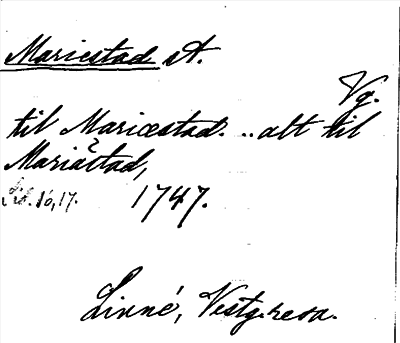 Mariestad st.
Vg.
til Mariæstad. .. alt til
Mariæstad,
Sid. 16, 17. 1747.
Linné, Vestg.resa.